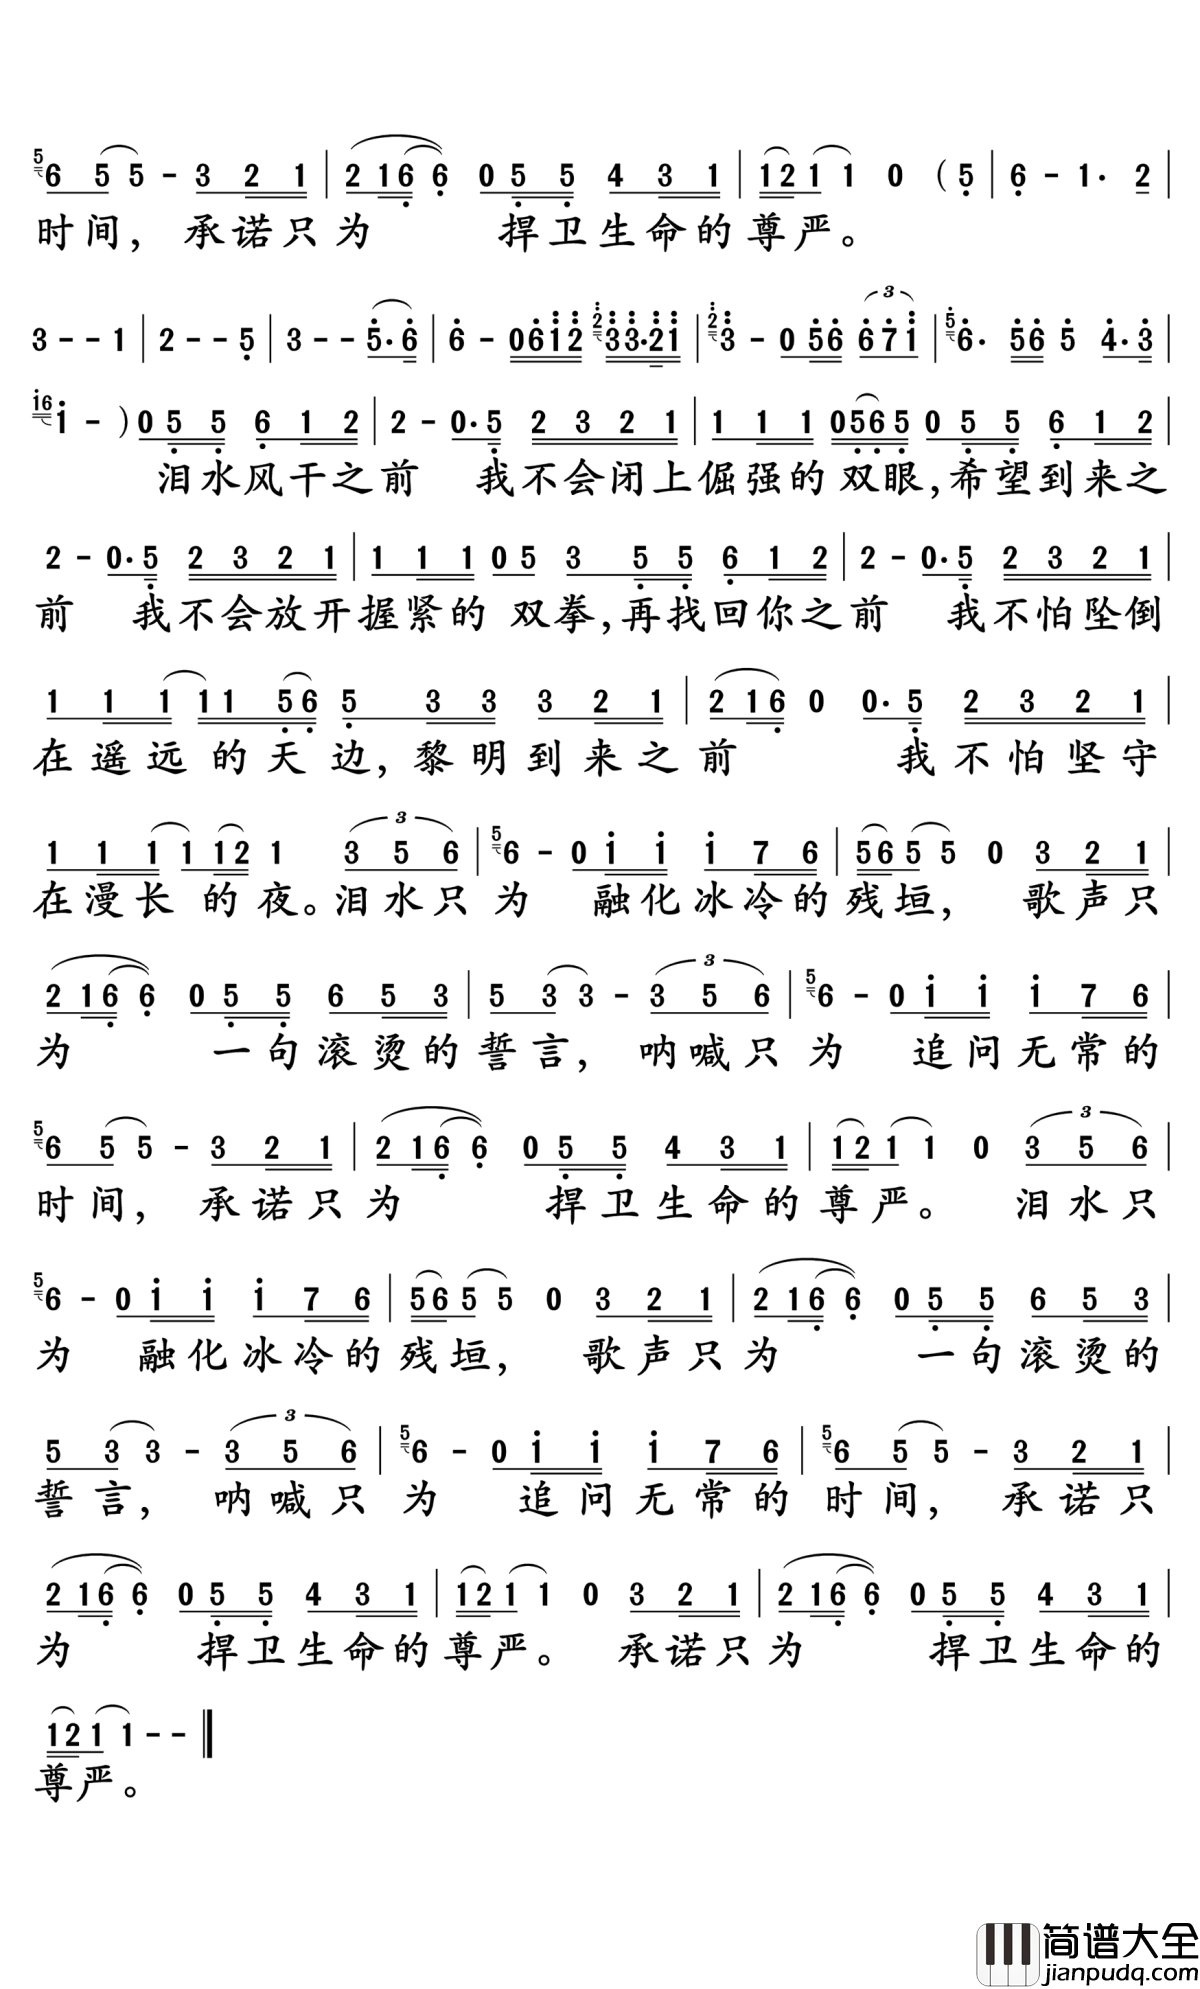 5 6 5 5 - 3 2 1 | 2 1 6 6 0 5 5 4 3 1 | 1 2 1 1 0 ( 5 | 6 - 1 · 2 |
时间，承诺只为 捍卫生命的尊严。
3 - - 1 | 2 - - 5 | 3 - - 5 · 6 | 6 - 0 6 1 2 2 3 3 · 2 1 | 2 3 - 0 5 6 3 6 7 1 | 5 6 · 5 6 5 4 · 3 |
1 6 1 - ) 0 5 5 6 1 2 | 2 - 0 · 5 2 3 2 1 | 1 1 1 0 5 6 5 0 5 5 6 1 2 |
泪水风干之前 我不会闭上倔强的双眼，希望到来之
2 - 0 · 5 2 3 2 1 | 1 1 1 0 5 3 5 5 6 1 2 | 2 - 0 · 5 2 3 2 1 |
前 我不会放开握紧的双拳，再找回你之前 我不怕坠倒
1 1 1 1 1 5 6 5 3 3 3 2 1 | 2 1 6 0 0 · 5 2 3 2 1 |
在遥远的天边，黎明到来之前 我不怕坚守
1 1 1 1 1 2 1 3 3 5 6 | 5 6 - 0 1 1 1 7 6 | 5 6 5 5 0 3 2 1 |
在漫长的夜。泪水只为 融化冰冷的残垣， 歌声只
2 1 6 6 0 5 5 6 5 3 | 5 3 3 - 3 3 5 6 | 5 6 - 0 1 1 1 7 6 |
为 一句滚烫的誓言， 呐喊只为 追问无常的
5 6 5 5 - 3 2 1 | 2 1 6 6 0 5 5 4 3 1 | 1 2 1 1 0 3 3 5 6 |
时间，承诺只为 捍卫生命的尊严。 泪水只
5 6 - 0 1 1 1 7 6 | 5 6 5 5 0 3 2 1 | 2 1 6 6 0 5 5 6 5 3 |
为 融化冰冷的残垣， 歌声只为 一句滚烫的
5 3 3 - 3 3 5 6 | 5 6 - 0 1 1 1 7 6 | 5 6 5 5 - 3 2 1 |
誓言， 呐喊只为 追问无常的时间， 承诺只
2 1 6 6 0 5 5 4 3 1 | 1 2 1 1 0 3 2 1 | 2 1 6 6 0 5 5 4 3 1 |
为 捍卫生命的尊严。 承诺只为 捍卫生命的
1 2 1 1 - - ‖
尊严。
简谱大全
jianpudq.com